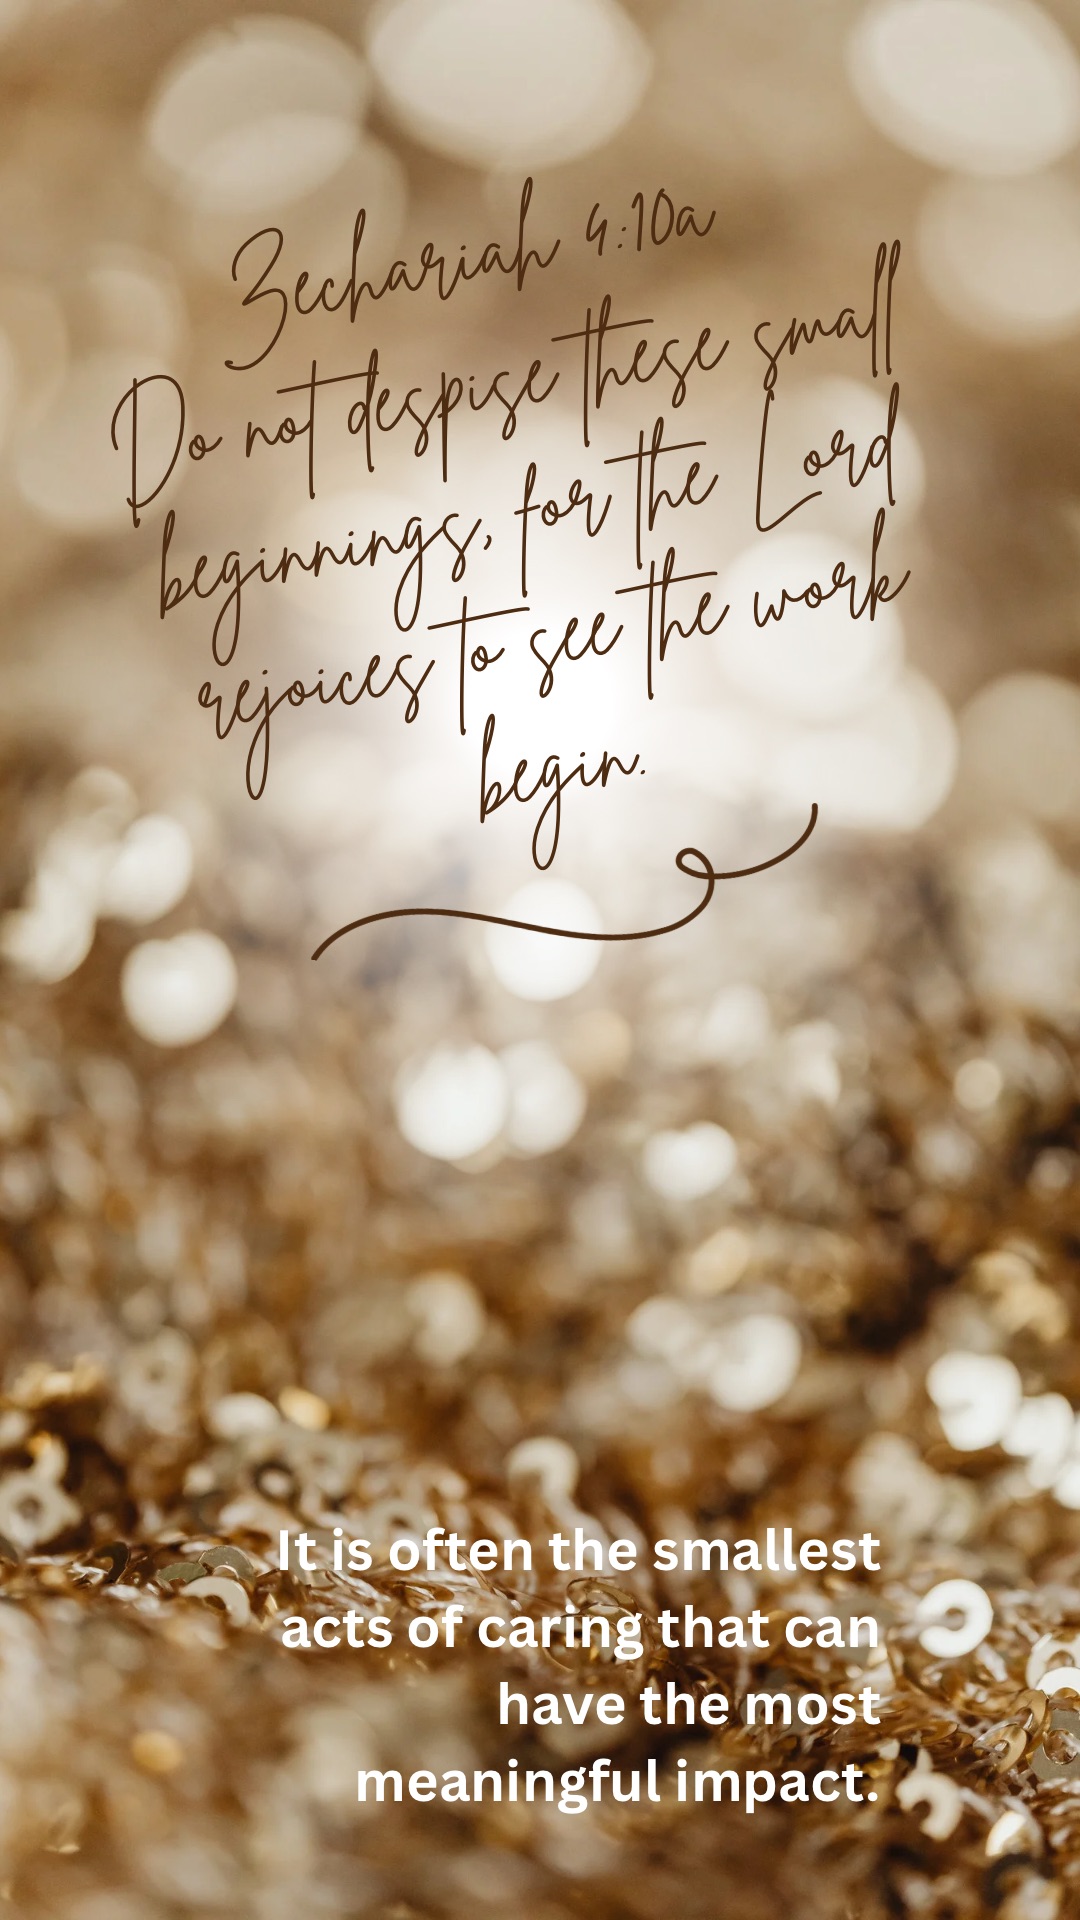 Zechariah 4:10a
Do not despise these small
beginnings, for the Lord
rejoices to see the work
begin.
It is often the smallest
acts of caring that can
have the most
meaningful impact.